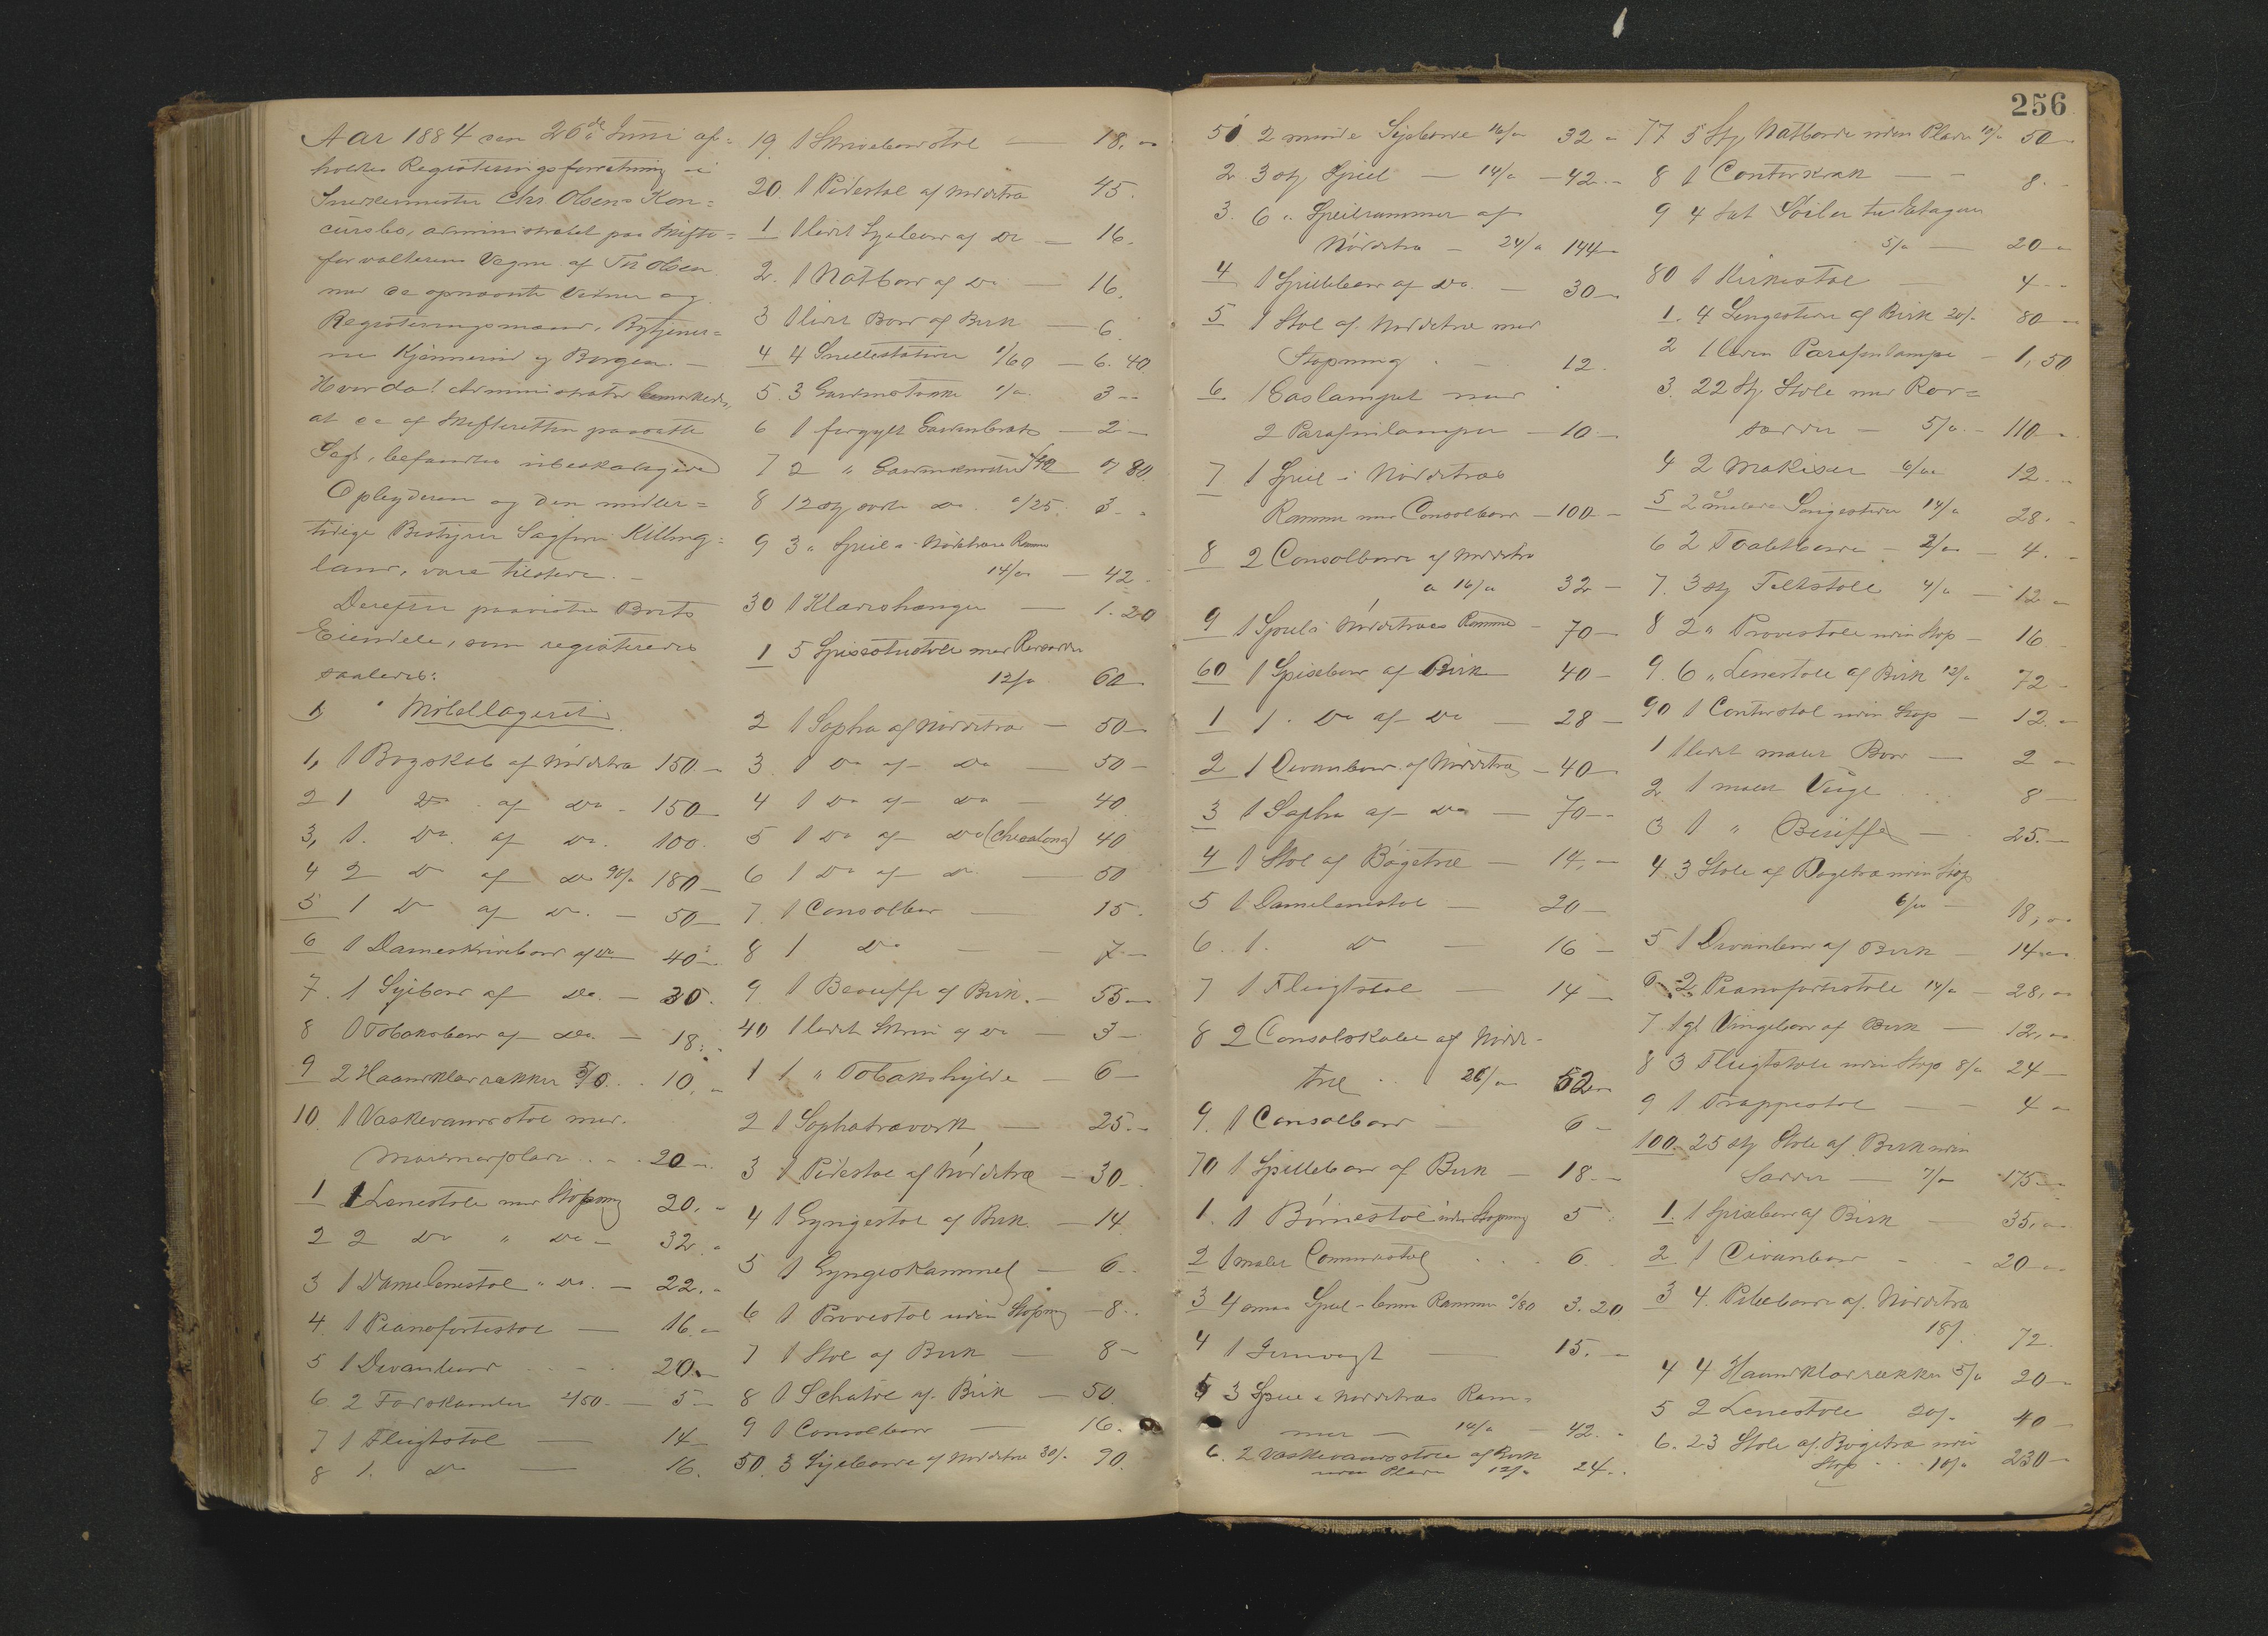 Aar 1884 den 26de Juni af=
holdtes Registreringsforretning i
Snedkermester Chr. Olsens Kon=
cursbo, administreret paa Skifte=
forvalterens Vegne af Th Olsen
med de opnævnte Vidner og
Registreringsmænd, Bytjener=
ne Kjønnerud og Borgen. —
Hvorda! Administrator bemærkede,
at de af Skifteretten paasatte
Segl, befandtes ubeskadigede
Opbyderen og den midler=
tidige Bestyrer Sagfører Killing=
land, vare tilstede. —
Derefter paavistes Boets
Eiendele, som registreredes
saaledes:
1, Møbellageret
1, 1 Bogskab af Nøddetræ 150 —
2 1 Do af Do - 150 —
3, 1. Do. af Do. 100.
4 2 Do af Do 90/a 180 —
5 1 Do af Do. — 50 —
6 1 Dameskrivebord af Do 40 —
7. 1 Sybord af Do. — 30.
8 1 Tobaksbord af Do. — 18.
9 2 Haandklærækker 5/a .. 10, —
10. 1 Vaskevandsstol med
Marmorplade .. 20 —
1 1 Lænestole med Stopning 20. —
2 2 Do " Do — 32. "
3 1 Damelænestol " Do. — 22. —
4. 1 Pianofortestol — 16. —
5 1 Divanbord .. 20 —
6 2 Fodskamler 2/50. — 5 —
7 1 Flugtstol — 14 —
8 1. Do — 16.
19. 1 Skrivebordstol — 18, "
20. 1 Pidestal af Nøddetræ 45.
1 1 lidet Sybord af Do — 16.
2. 1 Natbord af Do — 16.
3 1 lidet Bord af Birk — 6.
4 4 Snellestativer 1/60 — 6. 40
5. 3 Gardinstokke 1/a 3 —
6 1 forgyldt Gardinbræt — 2 —
7 2 " 80.
8 12 stk Do. a/25. 3. "
9 3 " Speil i Nøddetræs Ramme
14/a — 42.
30 1 Klædeshænger — 1. 20
1 5 Spisestuestole med Rørsæder
12/a 60
2 1 Sopha af Nøddetræ — 50 —
3 1 Do af Do — 50 —
4 1 Do af Do 40
5 1 Do af Do (Cheselong) 40
6 1 Do af Do — 50
7. 1 Consolbord — 15.
8 1 Do — 7. —
9. 1 Beauffe af Birk. — 55 —
40 1 lidet Skrin af Do — 3 —
1 1 " Tobakshylde — 6 —
2 1 Sophatræværk — 25. —
3 1 Pidestal af Nøddetræ — 30 —
4 1 Gyngestol af Birk. — 14
5 1 Gyngeskammel — 6 —
6 1 Provestol uden Stopning — 8 ..
7 1 Stol af Birk — 8 —
8 1 Schatol af Birk — 50.
9 1 Consolbord — 16.
50. 3 Syborde af Nøddetræ 30/- 90.
256
51 2 mindre Syborde 16/a 32 "
2 3 stk Speil — 14/a — 42. —
3. 6 " Speilrammer af
Nøddetræ — 24/a 144 —
4 1 Spillebord af Do. — 30 —
5 1 Stol af Nøddetræ med
Stopning — 12.
6. 1 Gaslampet med
2 Parafinlamper — 10 —
7 1 Speil i Nøddetræs
Ramme med Consolbord — 100 —
8 2 Consolborde af Nøddetræ
a 16/a 32 —
9 1 Speil i Nøddetræs Ramme — 70 —
60 1 Spisebord af Birk 40 —
1 1. Do af Do — 28 —
2 1 Divanbord af Nøddetræ — 40 —
3 1 Sopha af Do — 70 —
4 1 Stol af Bøgetræ — 14, —
5 1 Damelænestol — 20 —
6. 1. Do — 16 —
7 1 Flugtstol — 14 —
8 2 Consolskabe af Nødde-
træ .. 26/a 52 —
9. 1 Consolbord 6 —
70 1 Spillebord af Birk — 18. —
1. 1 Børnestol uden Stopning 5
2 1 malet Commodestol 6.
3 4 smaa Speil 3. 20
4 1 — 15. —
5 3 Speil i Nøddetræs Ram=
mer — 14/a 42. "
6. 2 Vaskevandsstole af Birk
uden Plade 12/a 24. .
77 5 Stk Natborde uden Plade 10/a 50 —
8 1 Contorkrak — 8. —
9 4 Sæt Søiler til Etagere
5/a — 20 "
80 1 Kirkestol — 4 —
1. 4 Sengesteder af Birk 20/- 80 —
2 1 liden Parafinlampe — 1, 50
3. 22 Stk. Stole med Rør=
sæder — 5/a. — 110 —
4 2 Makiser 6/a 12. —
5 2 malede Sengesteder 14/a 28. —
6 2 Toaletborde — 2/a — 4. —
7. 3 stk Feltstole 4/a — 12 —
8 2 " Provestole uden Stop — 16
9. 6 " Lenestole af Birk 12/a 72 —
90 1 Contorstol uden Stop — 12. "
1 1 lidet malet Bord — 2 —
2 1 malet Vuge .. 8 —
3 1 " Beuffe — 25. —
4 3 Stole af Bøgetræ uden Stop
6/a — 18, "
5 1 Divanbord af Birk — 14 —
6 2. Pianofortestole 14/a — 28, "
7 1 gl Vingebord af Birk — 12, "
8 3 Flugtstole uden Stop 8/a 24 —
9 1 Trappestol — 4 "
100. 25 stk Stole af Birk uden
Sæder — 7/a 175 —
1. 1 Spisebord af Birk — 35, "
2 1 Divanbord — 20 —
3 4. Pillerborde af Nøddetræ
18/. 72.
4 4 Haandklærækker 5/a 20 —
5 2 Lenestole 20/- 40 —
6. 23 Stole af Bøgetræ uden
Stop .. 10/a 230 —